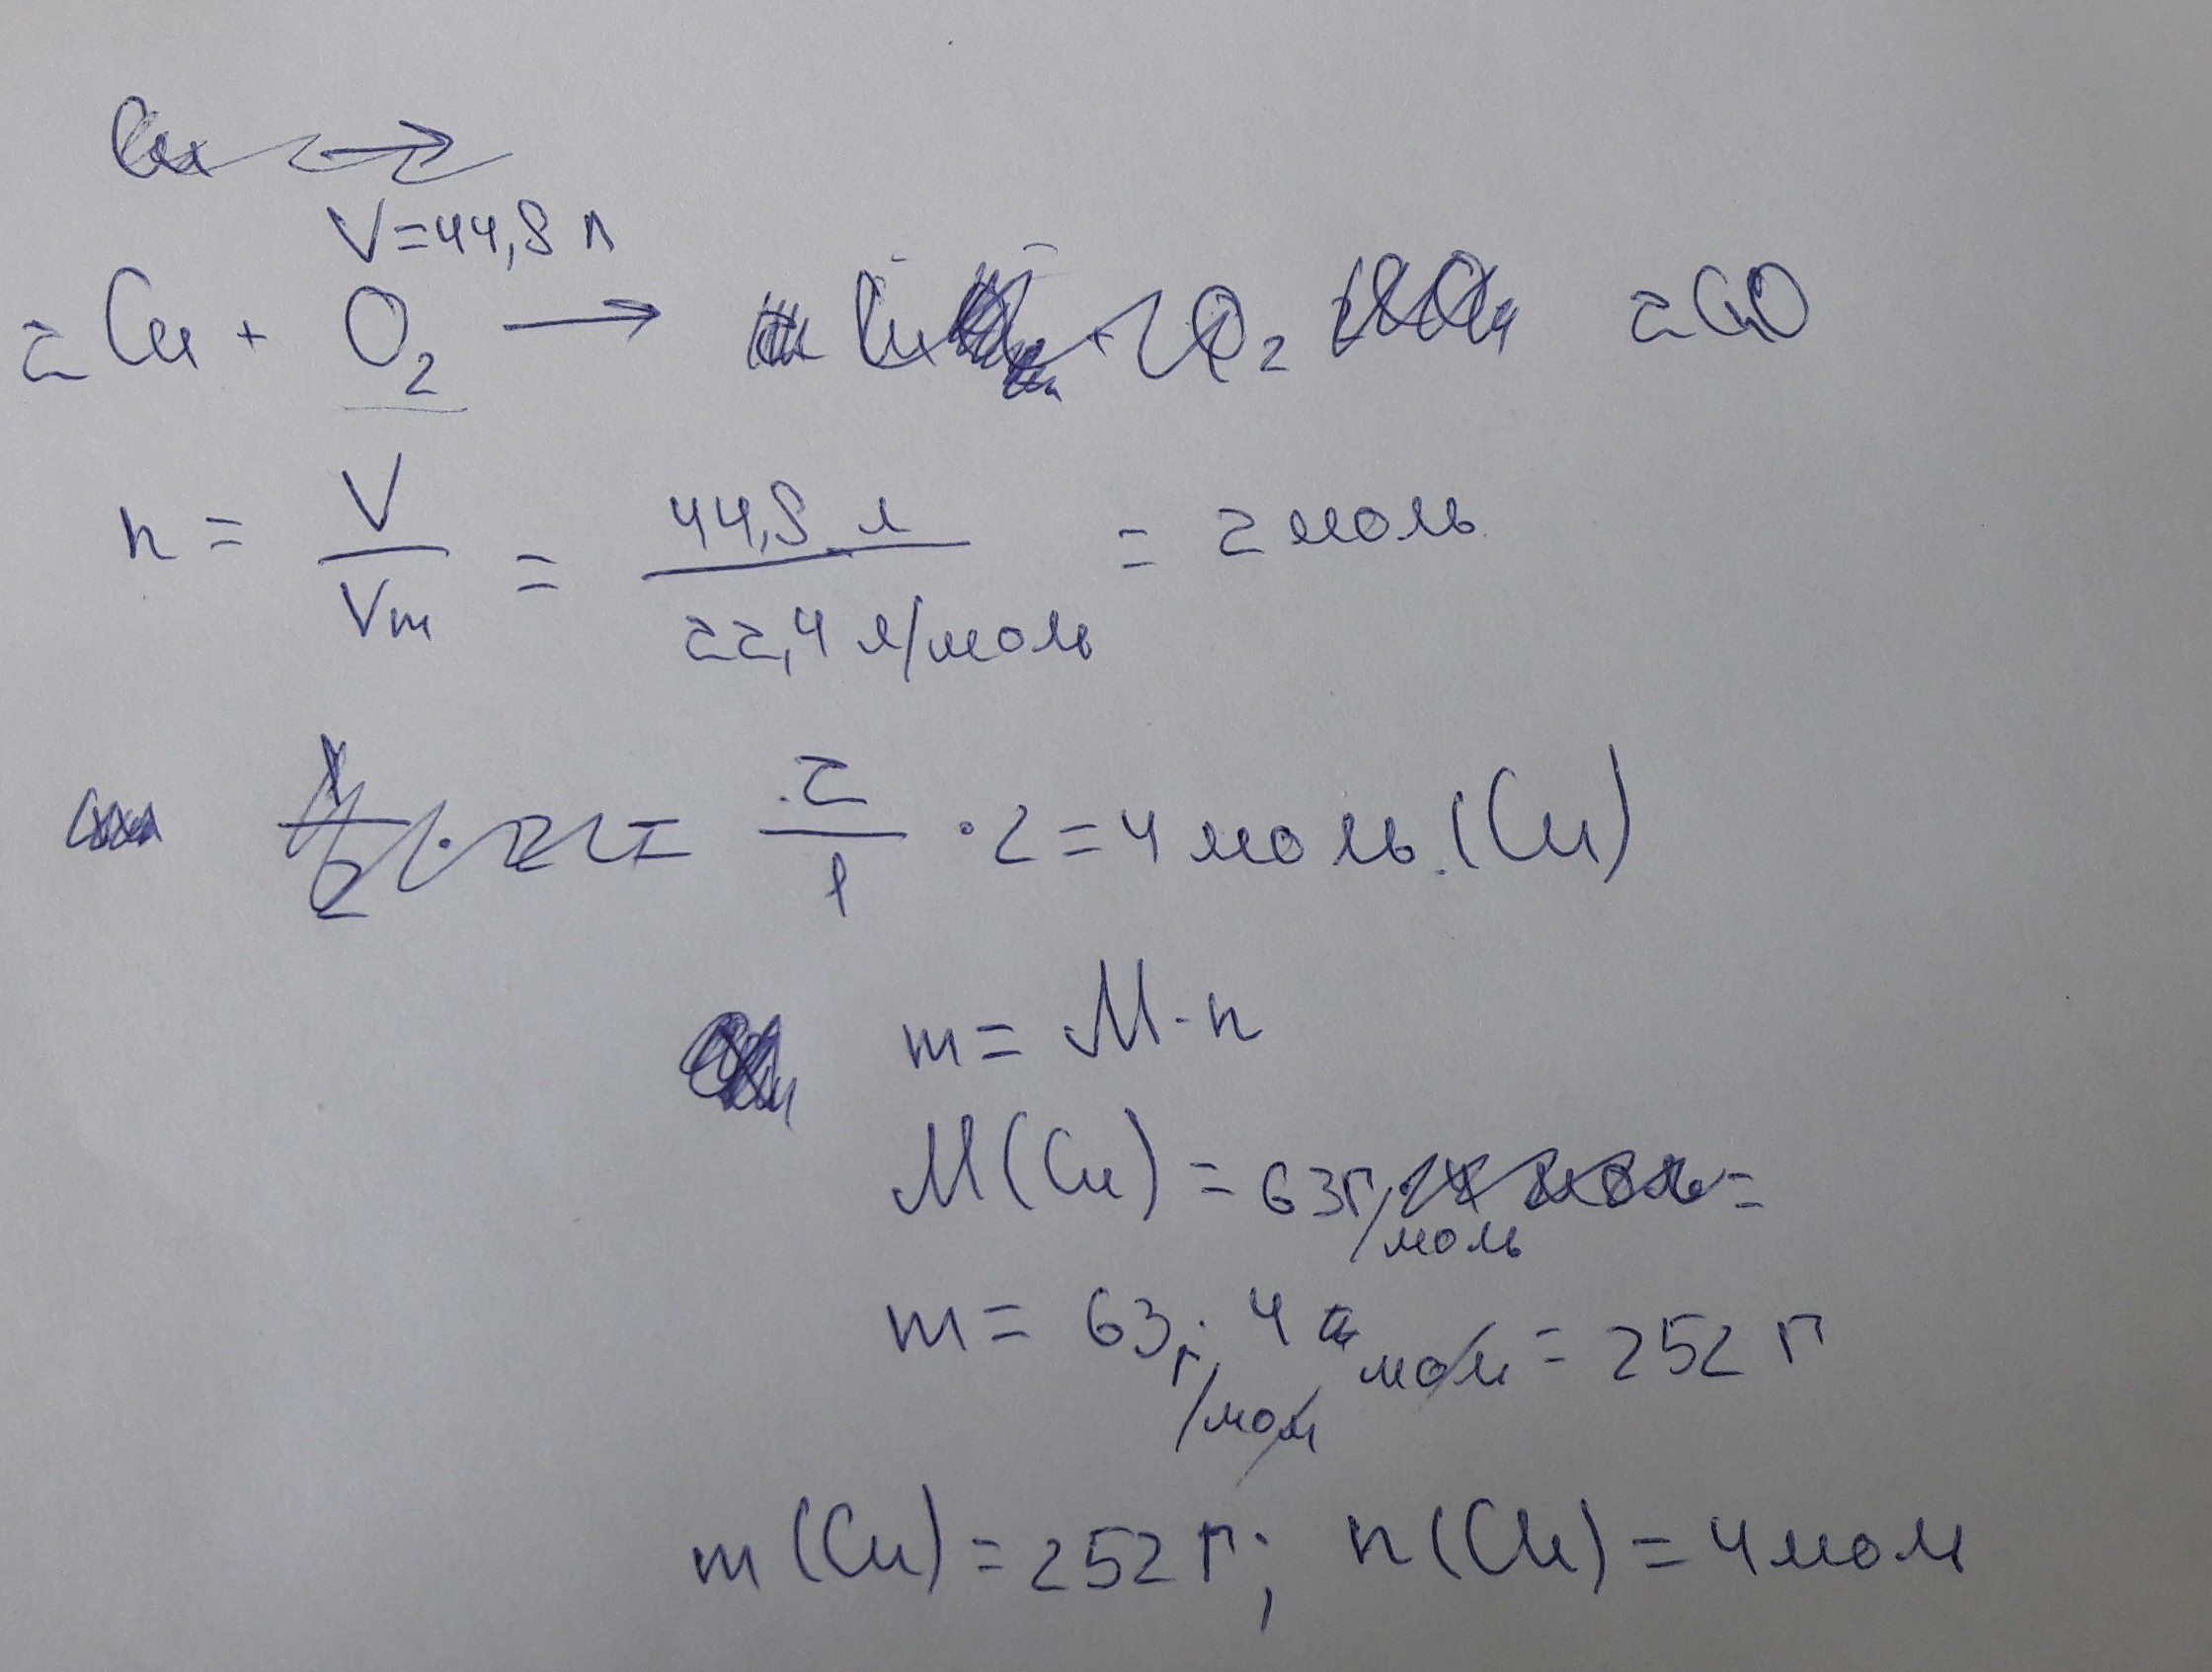 V=44,8 л
2Cu + O₂ → 2CuO
n = V/Vm = 44,8 л / 22,4 л/моль = 2 моль
2/1 · 2 = 4 моль (Cu)
m = M · n
M(Cu) = 63 г/моль =
m = 63 г/мол · 4 мол = 252 г
m(Cu) = 252 г; n(Cu) = 4 мол